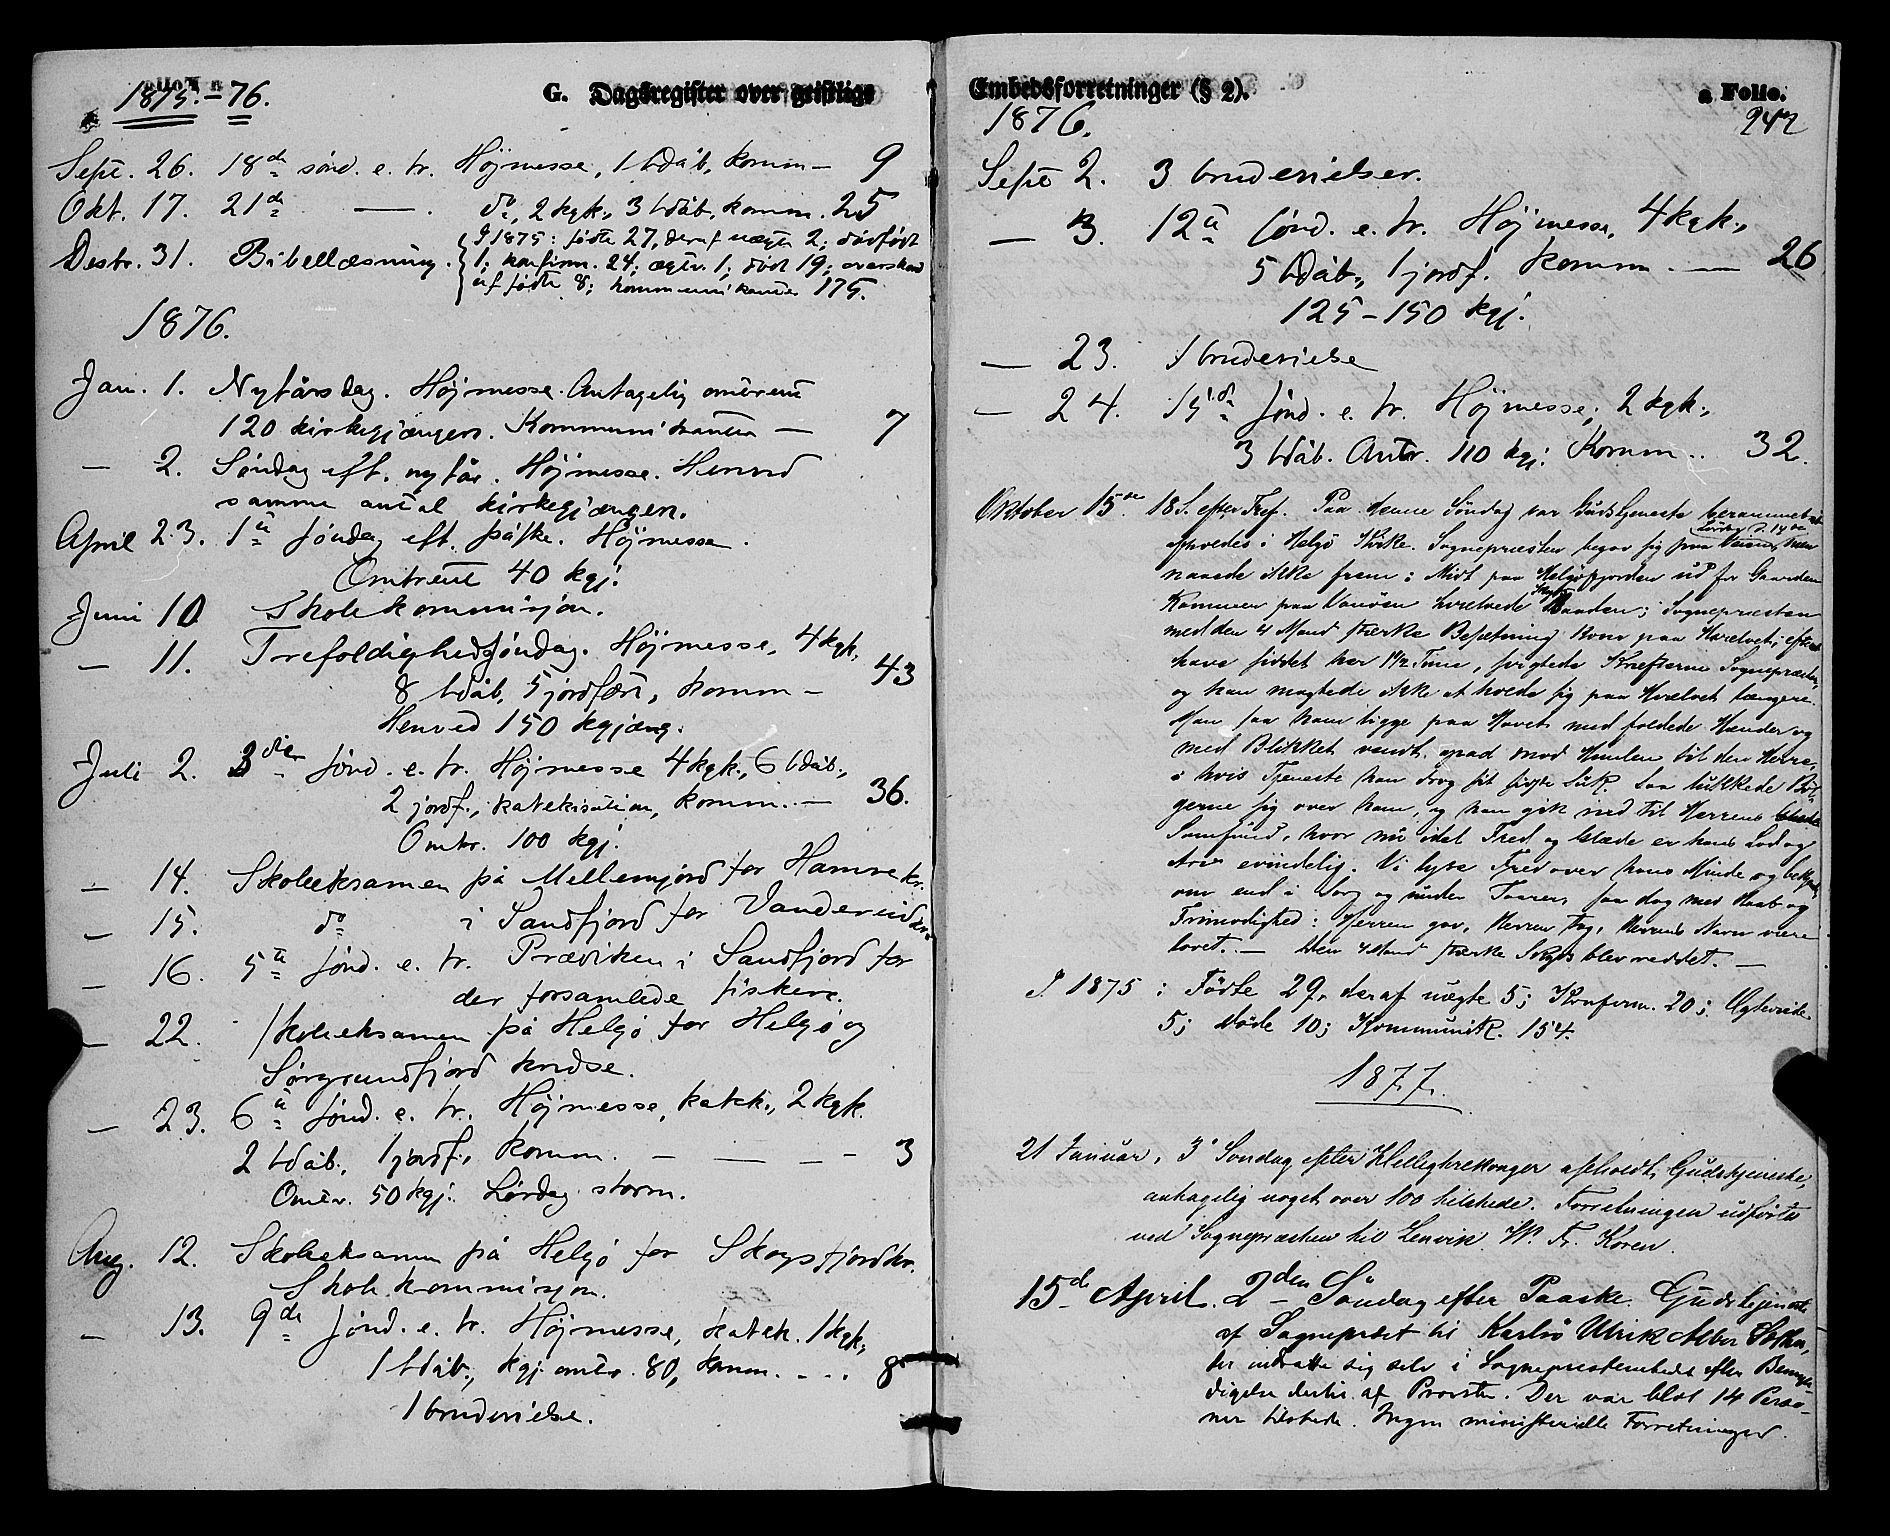 1875.-76.
G. Dagsregister over geistlige
Sept. 26. 18de sönd. e. tr. Höjmesse, 1 bdåb, komm – 9
Okt. 17. 21de —. do, 2 kgk., 3 bdåb, komm. 25
Desbr. 31. Bibellæsning.
I 1875: födte 27, deraf uægte 2; dödfödt
1; konfirm. 24; ægtev. 1; död 19; overskud
af födte 8; kommunikanter 175.
1876.
Jan. 1. Nytårsdag. Höjmesse. Antagelig omtrent
120 kirkegjængere. Kommunikanter — 7
— 2. Söndag eft. nytår. Höjmesse. Henved
samme antal kirkegjængere.
April 23. 1ste söndag eft. påske. Höjmesse.
Omtrent 40 kgj.
Juni 10 Skolekommisjon.
— 11. Trefoldighedssöndag. Höjmesse, 4 kgk,
8 bdåb, 5 jordfæst, komm – 43
Henved 150 kgjæng.
Juli 2. 3die sönd. e. tr. Höjmesse 4 kgk., 6 bdåb.,
2 jordf., katekisation, komm. — 36.
Omtr. 100 kgj.
— 14. Skoleeksamen på Mellemjord for Hamre kr.
— 15. do i Sandfjord for Vandereid
— 16. 5te sönd. e. tr. Prædiken i Sandfjord for
der forsamlede fiskere.
— 22. skoleeksamen på Helgö for Helgö og
Sörgrundfjord kredse.
— 23. 6te sönd. e. tr. Höjmesse, katek., 2 kgk.
2 bdåb., 1 jordf., komm. — — — 3
Omtr. 50 kgj. Lördag storm.
Aug. 12. Skoleeksamen på Helgö for Skogsfjord kr.
Skolekommisjon.
— 13. 9de sönd. e. tr. Höjmesse, katek. 1 kgk,
1 bdåb., kgj omtr. 80, komm. . . . 8
1 brudevielse.
Embedsforretninger (§ 2).
a Folio.
1876.
242
Sept 2. 3 brudevielser.
— 3. 12te sönd. e. tr. Höjmesse, 4 kgk.,
5 bdåb., 1 jordf. komm. — 26
125–150 kgj.
— 23. 1 brudevielse
— 24. 15de sönd. e. tr. Höjmesse, 2 kgk.,
3 bdåb. Antr. 110 kgj. Komm.. 32.
Oktober 15de 18 S. efter Tref. Paa denne Söndag var Gudstjeneste berammet
afholdes i Helgö Kirke. Sognepræsten begav sig paa Veien, Lördag d. 14de men
naaede ikke frem: Midt paa Helgöfjorden ud for Gaarden
Kammen paa Vanöen hvælvede Baaden; Sognepræsten
med den 4 Mand stærke Besætning kom paa Hvælvet; efter at
have siddet her 1½ Time, svigtede Kræfterne Sognepræsten,
og han magtede ikke at holde sig paa Hvælvet længere.
Man saa ham ligge paa Havet med foldede Hænder og
med Blikket vendt opad mod Himlen til den Herre,
i hvis Tjeneste han drog sit sidste Suk. Saa lukkede Böl-
gerne sig over ham, og han gik ind til Herrens
Samfund, hvor nu idel Fred og Glæde er hans Lod og
Arv evindelig. Vi lyse Fred over hans Minde og
om end i Sorg og under Taarer, saa dog med Haab og
Frimodighed: Herren gav, Herren tog, Herrens Navn være
lovet. — Den 4 Mand stærke Skyds blev reddet. —
I 1875: Födte 29, deraf uægte 5; Konfirm. 20; Ægteviede
5; Döde 10; Kommunik. 154.
1877.
21 Januar, 3' Söndag efter Helligtrekonger afholdt Gudstjeneste,
antagelig noget over 100 tilstede. Forretningen udförtes
ved Sognepræsten til Lenvik W. Fr. Koren.
15de April. 2den Söndag efter Paaske. Gudstjeneste
af Sognepræst til Karlsö Ulrik
der indsatte sig selv i Sognepræstembedet efter Bemyn-
digelse dertil af Provsten. Der var blot 14 Perso-
ner tilstede. Ingen ministerielle Forretninger.